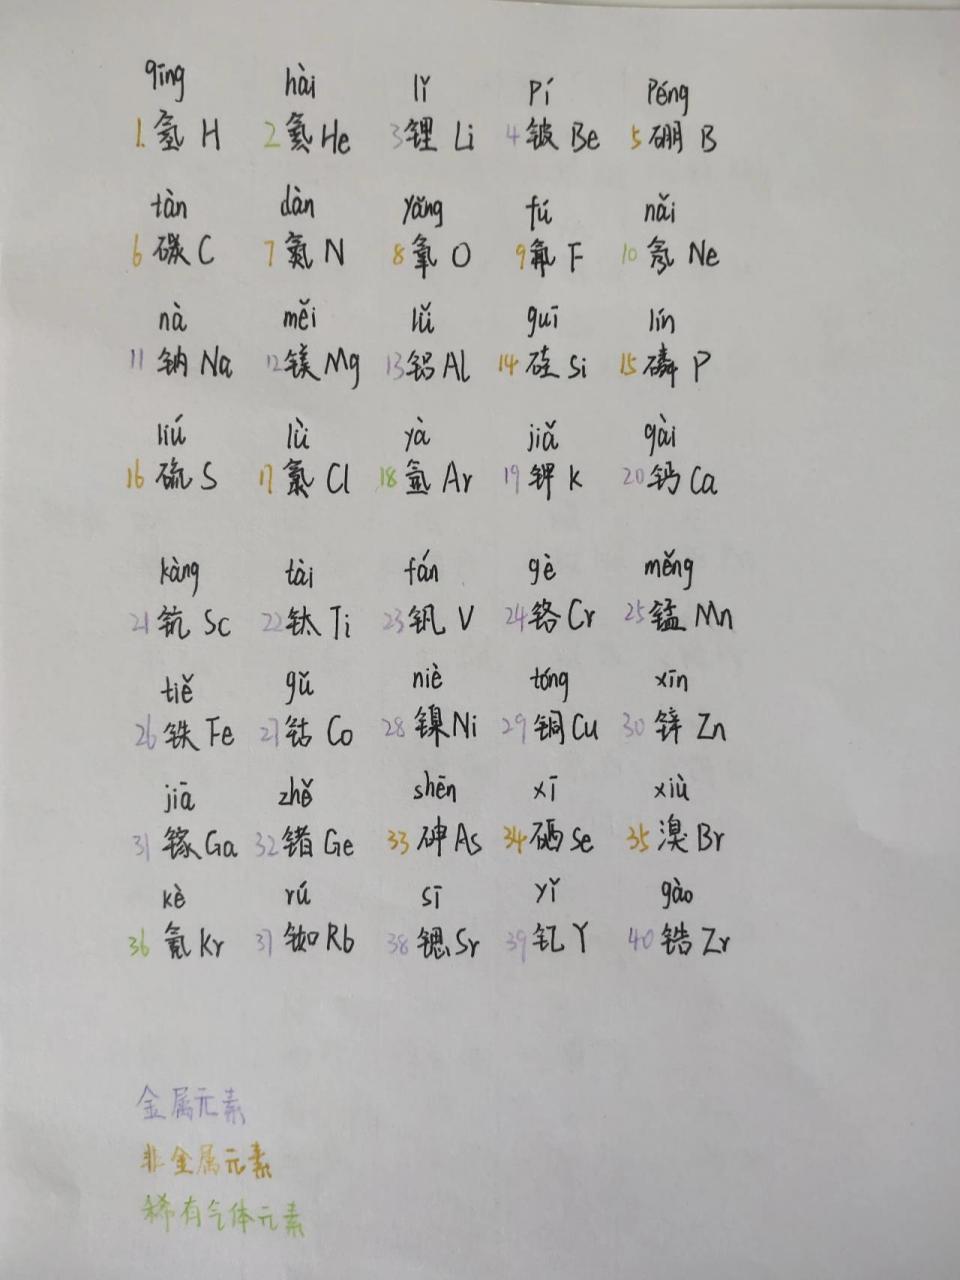 qīng hài lǐ Pí Péng
1. 氢 H 2 氦 He 3 锂 Li 4 铍 Be 5 硼 B
tàn dàn yǎng fú nǎi
6 碳 C 7 氮 N 8 氧 O 9 氟 F 10 氖 Ne
nà měi lǚ guī lín
11 钠 Na 12 镁 Mg 13 铝 Al 14 硅 Si 15 磷 P
liú lǜ yà jiǎ gài
16 硫 S 17 氯 Cl 18 氩 Ar 19 钾 K 20 钙 Ca
kàng tài fán gè měng
21 钪 Sc 22 钛 Ti 23 钒 V 24 铬 Cr 25 锰 Mn
tiě gǔ niè tóng xīn
26 铁 Fe 27 钴 Co 28 镍 Ni 29 铜 Cu 30 锌 Zn
jiā zhě shēn xī xiù
31 镓 Ga 32 锗 Ge 33 砷 As 34 硒 Se 35 溴 Br
kè rú sī yǐ gào
36 氪 Kr 37 铷 Rb 38 锶 Sr 39 钇 Y 40 锆 Zr
金属元素
非金属元素
稀有气体元素